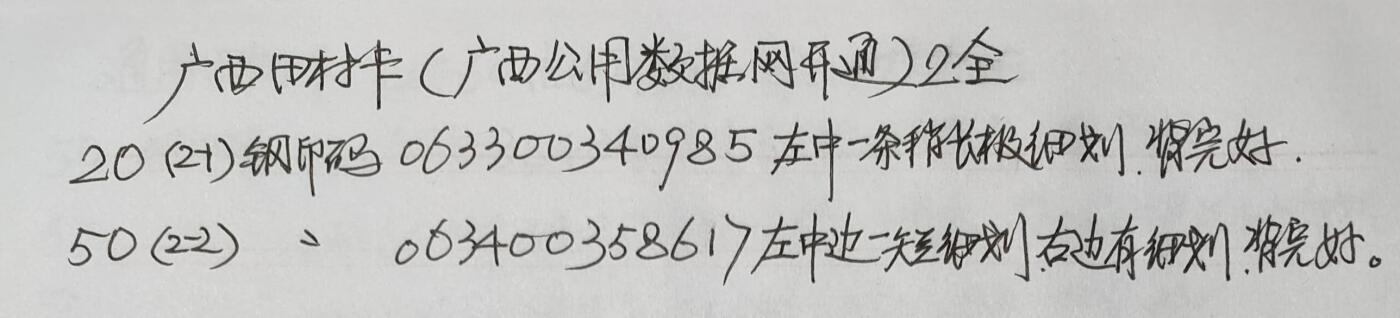 广西田村卡（广西公用数据网开通）2全
20（2-1）钢印码 063300340985 左中一条稍长极细划.背完好.
50（2-2） 〃 063400358617 左中边一短细划.右边有细划.背完好。